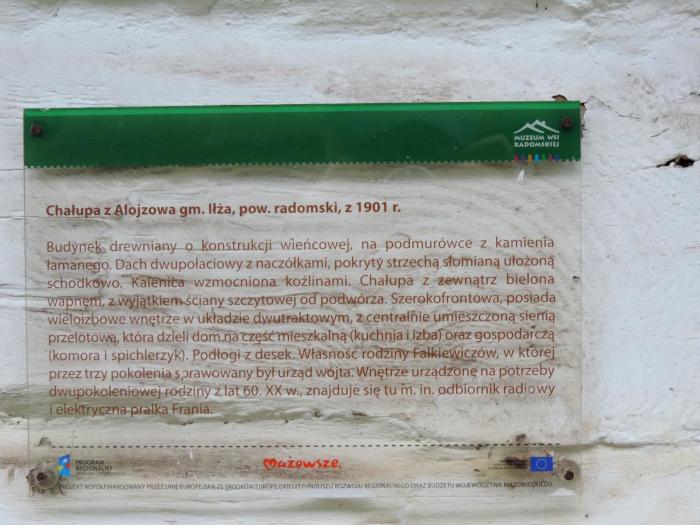 MUZEUM WSI
RADOMSKIEJ
Chałupa z Alojzowa gm. Iłża, pow. radomski, z 1901 r.
Budynek drewniany o konstrukcji wieńcowej, na podmurówce z kamienia
łamanego. Dach dwupołaciowy z naczółkami, pokryty strzechą słomianą ułożoną
schodkowo. Kalenica wzmocniona koźlinami. Chałupa z zewnątrz bielona
wapnem, z wyjątkiem ściany szczytowej od podwórza. Szerokofrontowa, posiada
wieloizbowe wnętrze w układzie dwutraktowym, z centralnie umieszczoną sienią
przelotową, która dzieli dom na część mieszkalną (kuchnia i izba) oraz gospodarczą
(komora i spichlerzyk). Podłogi z desek. Własność rodziny Fałkiewiczów, w której
przez trzy pokolenia sprawowany był urząd wójta. Wnętrze urządzone na potrzeby
dwupokoleniowej rodziny z lat 60. XX w., znajduje się tu m. in. odbiornik radiowy
i elektryczna pralka Frania.
PROGRAM
REGIONALNY
Mazowsze.
PROJEKT WSPÓŁFINANSOWANY PRZEZ UNIĘ EUROPEJSKĄ ZE ŚRODKÓW EUROPEJSKIEGO FUNDUSZU ROZWOJU REGIONALNEGO ORAZ BUDŻETU WOJEWÓDZTWA MAZOWIECKIEGO